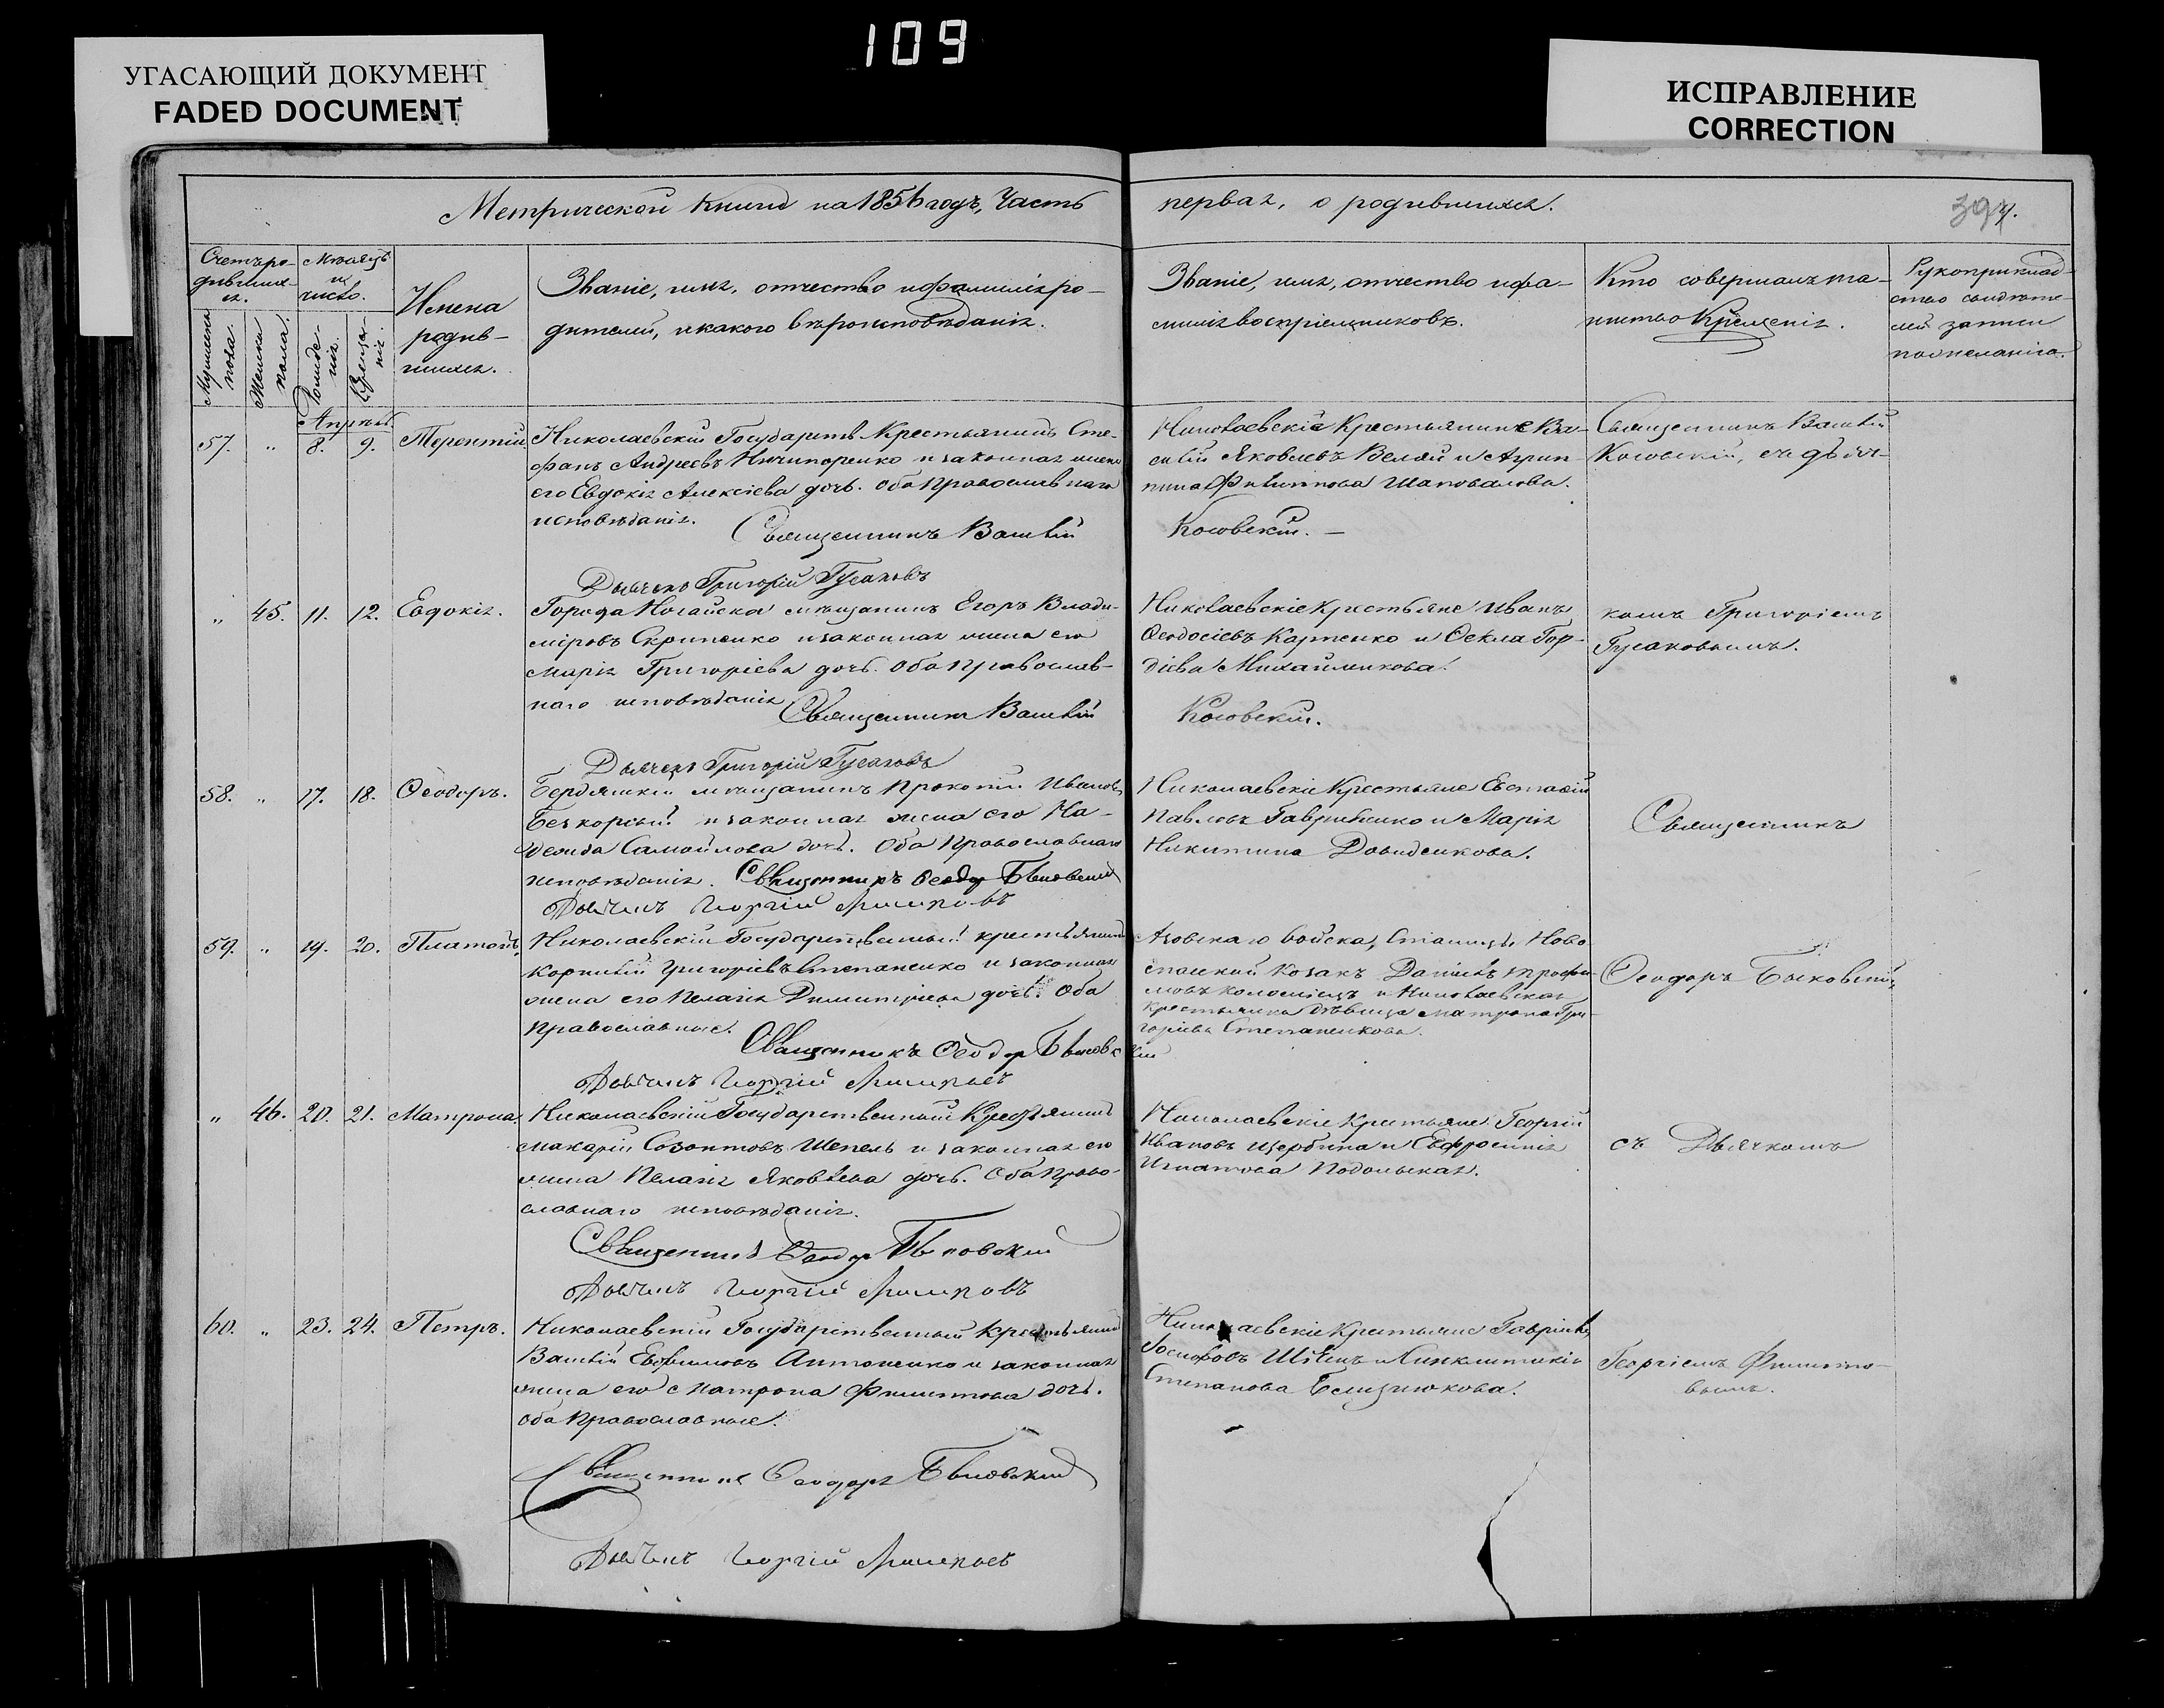 109
УГАСАЮЩИЙ ДОКУМЕНТ
FADED DOCUMENT
ИСПРАВЛЕНИЕ
CORRECTION
Метрической книги на 1856 годъ, Часть первая, о родившихся.
Счетъ ро-
дивших-
ся.
Мѣсяцъ
и
число.
Мужеска
пола.
Женска
пола.
Рожде-
нія.
Креще-
нія.
Имена
родив-
шихся.
Званіе, имя, отчество и фамилія ро-
дителей, и какого вѣроисповѣданія.
Званіе, имя, отчество и фа-
милія воспріемниковъ.
Кто совершалъ та-
инство Крещенія.
Рукоприклад-
ство свидѣте-
лей записи
по желанію.
Апрѣль
57. " 8. 9. Терентій.
Николаевскій Государств. Крестьянинъ Сте-
фанъ Андреевъ Ничипоренко и законная жена
его Евдокія Алексіева дочь. Оба православнаго
исповѣданія.
Священникъ Василій Косовскій.
Дьячекъ Григорій Гусаковъ
Николаевскіе Крестьянинъ Ва-
силій Яковлевъ Велей и Агрип-
пина Филиппова Шаповалова.
Священникъ Василій
Косовскій, съ дьяч-
" 45. 11. 12. Евдокія.
Города Ногайска мѣщанинъ Егоръ Влади-
міровъ Скрипенко и законная жена его
Марія Григоріева дочь. Оба православ-
наго исповѣданія
Священникъ Василій Косовскій.
Дьячекъ Григорій Гусаковъ
Николаевскіе Крестьяне Иванъ
Ѳеодосіевъ Карпенко и Ѳекла Гор-
діева Михайликова.
комъ Григоріемъ
Гусаковымъ.
58. " 17. 18. Ѳеодоръ.
Бердянскій мѣщанинъ Прокопій Ивановъ
Безкорсый и законная жена его На-
дежда Самойлова дочь. Оба Православнаго
исповѣданія. Священникъ Ѳеодоръ Быковскій
Дьячекъ Георгій
Николаевскіе Крестьяне Евстафій
Павловъ Гавриленко и Марія
Никитина Давиденкова.
Священникъ
59. " 19. 20. Платонъ.
Николаевскій Государственный крестьянинъ
Корнилій Григоріевъ Степаненко и законная
жена его Пелагія Димитріева дочь. Оба
православные.
Священникъ Ѳеодоръ Быковскій
Дьячекъ Георгій
Азовскаго войска, Станицы Ново-
спаской Козакъ Даніилъ Трофи-
мовъ Коломіецъ и Николаевская
крестьянка дѣвица Матрона Гри-
горіева Степаненкова.
Ѳеодоръ Быковскій,
" 46. 20. 21. Матрона.
Николаевскій Государственный Крестьянинъ
Макарій Созонтовъ Шепель и законная его
жена Пелагія Яковлева дочь. Оба право-
славнаго исповѣданія.
Священникъ Ѳеодоръ Быковскій
Дьячекъ Георгій
Николаевскіе Крестьяне Георгій
Ивановъ Щербина и Евфросинія
Игнатова Подольская.
съ Дьячкомъ
60. " 23. 24. Петръ.
Николаевскій Государственный Крестьянинъ
Василій Евфимовъ Антоненко и законная
жена его Матрона Филиппова дочь.
Оба Православные.
Священникъ Ѳеодоръ Быковскій
Дьячекъ Георгій
Николаевскіе Крестьяне Гавріилъ
Іосифовъ Швецъ и Синклитикія
Степанова
Георгіемъ Филиппо-
вымъ.